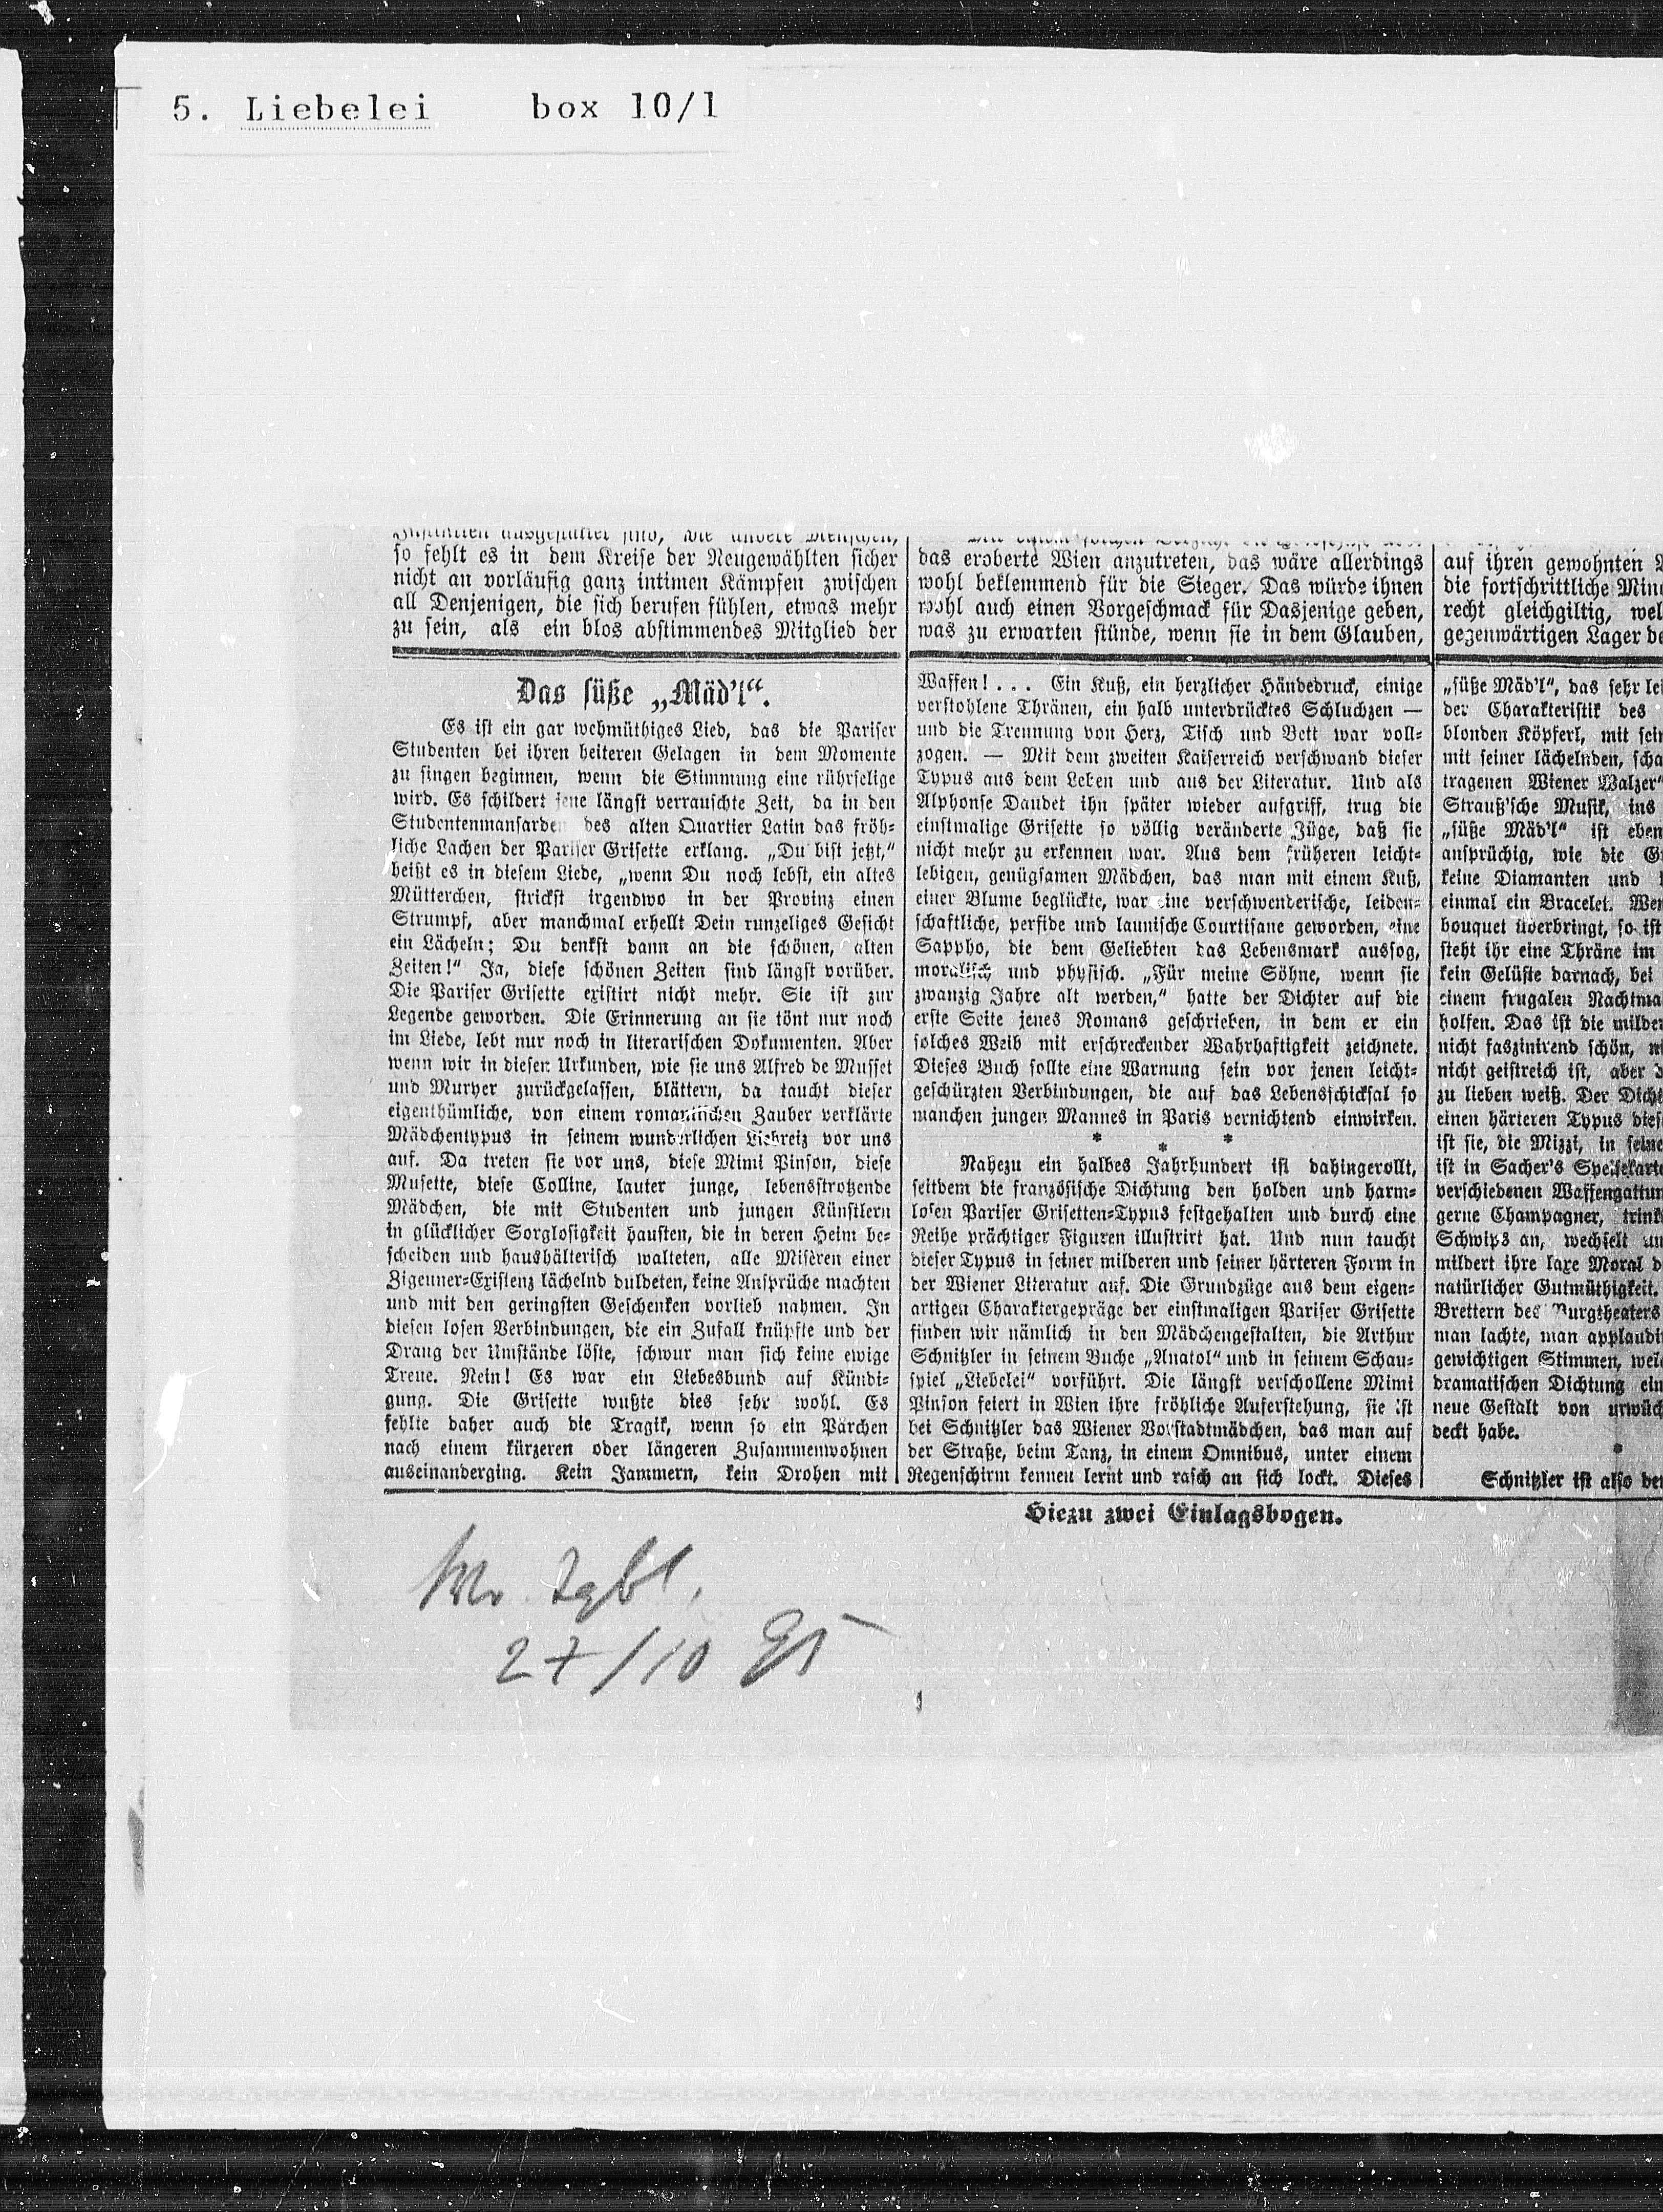 5. Liebelei box 10/1
so fehlt es in dem Kreise der Neugewählten sicher
nicht an vorläufig ganz intimen Kämpfen zwischen
all Denjenigen, die sich berufen fühlen, etwas mehr
zu sein, als ein blos abstimmendes Mitglied der
das eroberte Wien anzutreten, das wäre allerdings
wohl beklemmend für die Sieger. Das würde ihnen
wohl auch einen Vorgeschmack für Dasjenige geben,
was zu erwarten stünde, wenn sie in dem Glauben,
auf ihren gewohnten
die fortschrittliche
recht gleichgiltig,
gegenwärtigen Lager
Das süße „Mäd'l“.
Es ist ein gar wehmüthiges Lied, das die Pariser
Studenten bei ihren heiteren Gelagen in dem Momente
zu singen beginnen, wenn die Stimmung eine rührselige
wird. Es schildert jene längst verrauschte Zeit, da in den
Studentenmansarden des alten Quartier Latin das fröh-
liche Lachen der Pariser Grisette erklang. „Du bist jetzt,“
heißt es in diesem Liede, „wenn Du noch lebst, ein altes
Mütterchen, strickst irgendwo in der Provinz einen
Strumpf, aber manchmal erhellt Dein runzeliges Gesicht
ein Lächeln; Du denkst dann an die schönen, alten
Zeiten!“ Ja, diese schönen Zeiten sind längst vorüber.
Die Pariser Grisette existirt nicht mehr. Sie ist zur
Legende geworden. Die Erinnerung an sie tönt nur noch
im Liede, lebt nur noch in literarischen Dokumenten. Aber
wenn wir in diesen Urkunden, wie sie uns Alfred de Musset
und Murger zurückgelassen, blättern, da taucht dieser
eigenthümliche, von einem romantischen Zauber verklärte
Mädchentypus in seinem wunderlichen Liebreiz vor uns
auf. Da treten sie vor uns, diese Mimi Pinson, diese
Musette, diese Colline, lauter junge, lebensstrotzende
Mädchen, die mit Studenten und jungen Künstlern
in glücklicher Sorglosigkeit hausten, die in deren Heim be-
scheiden und haushälterisch walteten, alle Misèren einer
Zigeuner-Existenz lächelnd duldeten, keine Ansprüche machten
und mit den geringsten Geschenken vorlieb nahmen. In
diesen losen Verbindungen, die ein Zufall knüpfte und der
Drang der Umstände löste, schwur man sich keine ewige
Treue. Nein! Es war ein Liebesbund auf Kündi-
gung. Die Grisette wußte dies sehr wohl. Es
fehlte daher auch die Tragik, wenn so ein Pärchen
nach einem kürzeren oder längeren Zusammenwohnen
auseinanderging. Kein Jammern, kein Drohen mit
Waffen! . . . Ein Kuß, ein herzlicher Händedruck, einige
verstohlene Thränen, ein halb unterdrücktes Schluchzen —
und die Trennung von Herz, Tisch und Bett war voll-
zogen. — Mit dem zweiten Kaiserreich verschwand dieser
Typus aus dem Leben und aus der Literatur. Und als
Alphonse Daudet ihn später wieder aufgriff, trug die
einstmalige Grisette so völlig veränderte Züge, daß sie
nicht mehr zu erkennen war. Aus dem früheren leicht-
lebigen, genügsamen Mädchen, das man mit einem Kuß,
einer Blume beglückte, war eine verschwenderische, leiden-
schaftliche, perfide und launische Courtisane geworden, eine
Sappho, die dem Geliebten das Lebensmark aussog,
moralisch und physisch. „Für meine Söhne, wenn sie
zwanzig Jahre alt werden,“ hatte der Dichter auf die
erste Seite jenes Romans geschrieben, in dem er ein
solches Weib mit erschreckender Wahrhaftigkeit zeichnete.
Dieses Buch sollte eine Warnung sein vor jenen leicht-
geschürzten Verbindungen, die auf das Lebensschicksal so
manchen jungen Mannes in Paris vernichtend einwirken.
* * *
Nahezu ein halbes Jahrhundert ist dahingerollt,
seitdem die französische Dichtung den holden und harm-
losen Pariser Grisetten-Typus festgehalten und durch eine
Reihe prächtiger Figuren illustrirt hat. Und nun taucht
dieser Typus in seiner milderen und seiner härteren Form in
der Wiener Literatur auf. Die Grundzüge aus dem eigen-
artigen Charaktergepräge der einstmaligen Pariser Grisette
finden wir nämlich in den Mädchengestalten, die Arthur
Schnitzler in seinem Buche „Anatol“ und in seinem Schau-
spiel „Liebelei“ vorführt. Die längst verschollene Mimi
Pinson feiert in Wien ihre fröhliche Auferstehung, sie ist
bei Schnitzler das Wiener Vorstadtmädchen, das man auf
der Straße, beim Tanz, in einem Omnibus, unter einem
Regenschirm kennen lernt und rasch an sich lockt. Dieses
„süße Mäd'l“, das sehr
der Charakteristik des
blonden Köpferl, mit
mit seiner lächelnden,
tragenen Wiener Walzer“
Strauß'sche Musik, ins
„süße Mäd'l“ ist eben
ansprüchig, wie die
keine Diamanten und
einmal ein Bracelet.
bouquet überbringt, so ist
steht ihr eine Thräne im
kein Gelüste darnach, bei
einem frugalen
holfen. Das ist die
nicht faszinirend schön,
nicht geistreich ist, aber
zu lieben weiß. Der
einen härteren Typus
ist sie, die Mizzi, in
ist in Sacher's
verschiedenen
gerne Champagner,
Schwips an, wechselt
mildert ihre laxe Moral
natürlicher Gutmüthigkeit.
Brettern des Burgtheaters
man lachte, man
gewichtigen Stimmen,
dramatischen Dichtung
neue Gestalt von
deckt habe.
*
Schnitzler ist also
Hiezu zwei Einlagsbogen.
Wr. Tgbl.
27/10 95